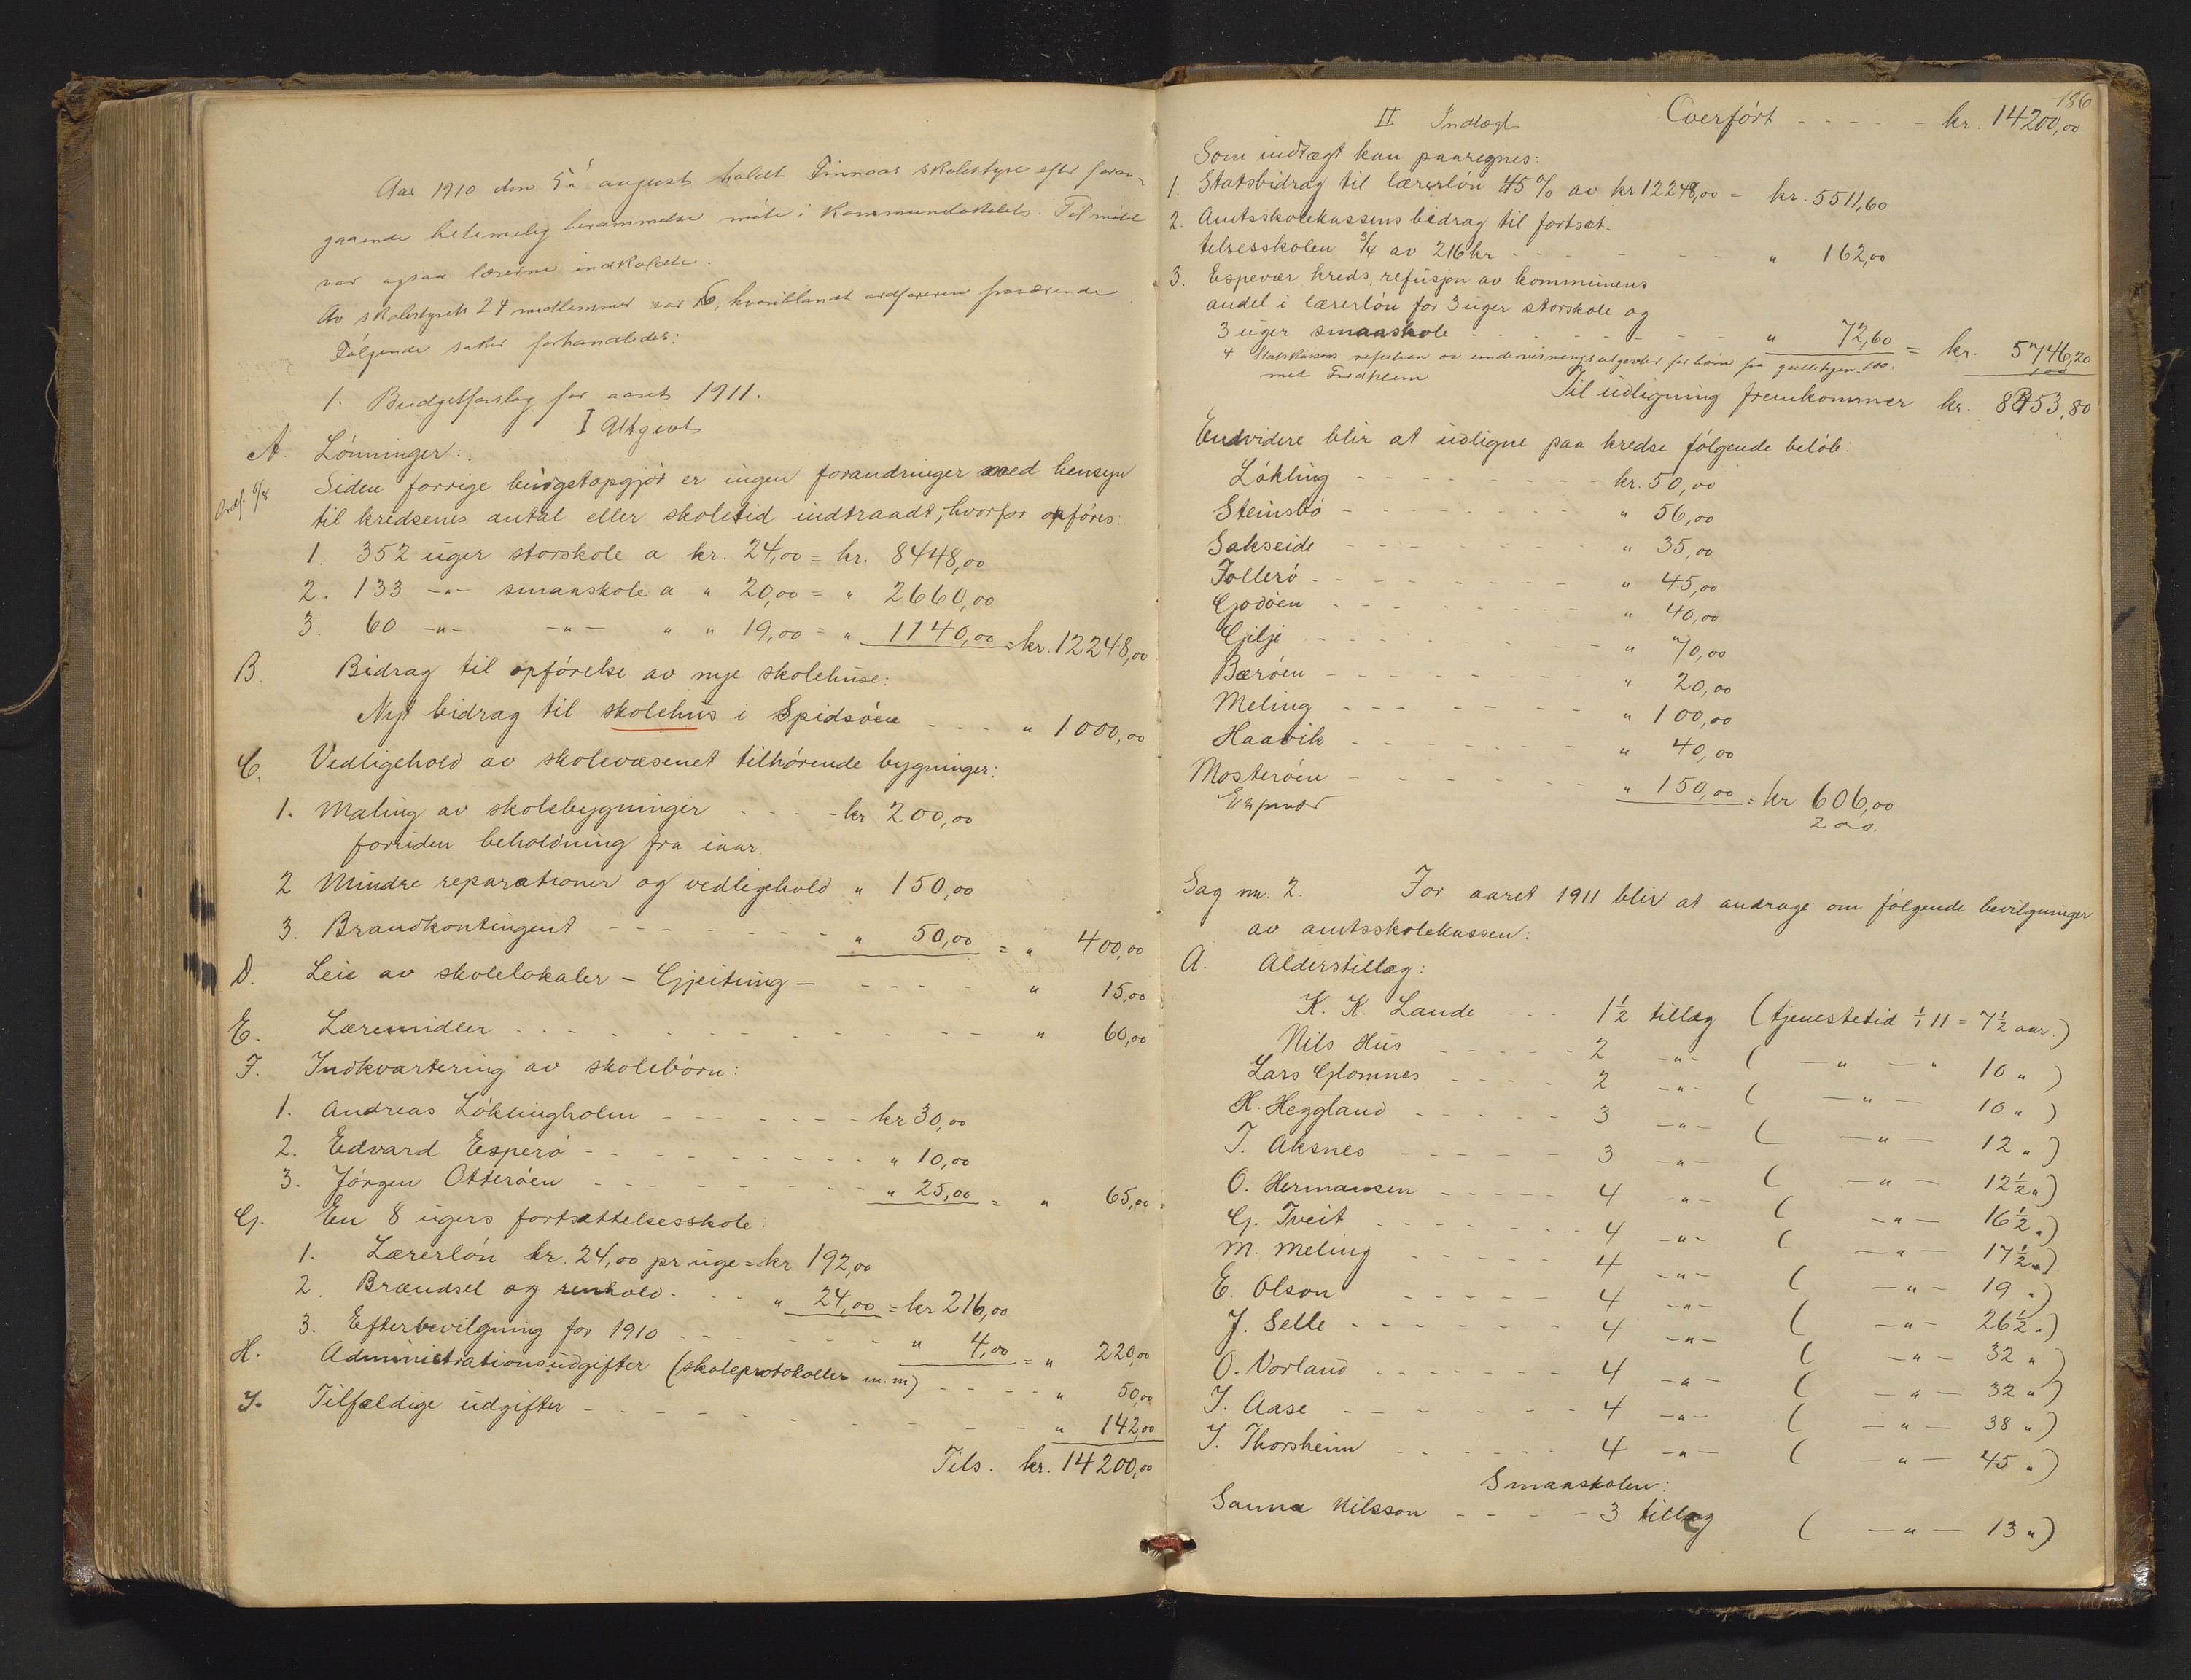 Aar 1910 den 5te august holdt Finnaas skolestyre efter foran-
gaaende betimelig berammelse møte i Kommunelokalet. Til møtet
var ogsaa lærerne indkaldte.
Av skolestyrets 24 medlemmer var 16, hvoriblandt ordføreren fraværende
Følgende saker forhandledes:
1. Budgetforslag for aaret 1911.
I Utgivt
A. Lønninger:
Siden forrige budgetopgjør er ingen forandringer med hensyn
Ordf. 6/8
til kredsenes antal eller skoletid indtraadt, hvorfor opføres:
1. 352 uger storskole a kr. 24,00 = kr. 8448,00
2. 133 -"- smaaskole a " 20,00 = " 2660,00
3. 60 -"- -"- " " 19,00 = " 1140,00 = kr. 12248,00
B. Bidrag til opførelse av nye skolehuse:
Nyt bidrag til skolehus i Spidsøen - - - " 1000,00
C. Vedligehold av skolevæsenet tilhørende bygninger:
1. Maling av skolebygninger - - - kr 200,00
foruden beholdning fra iaar.
2 Mindre reparationer og vedligehold " 150,00
3. Brandkontingent - - - - - - - " 50,00 = " 400,00
D. Leie av skolelokaler - Gjeitung - - - - - " 15,00
E. Læremidler - - - - - - - - - - " 60,00
F. Indkvartering av skolebørn:
1. Andreas Løklingholm - - - - - - kr 30,00
2. Edvard Esperø - - - - - - - - - " 10,00
3. Jørgen Otterøen - - - - - - - - " 25,00 = " 65,00
G. En 8 ugers fortsættelsesskole:
1. Lærerløn kr. 24,00 pr uge = kr 192,00
2. Brændsel og renhold - - - " 24,00 = kr 216,00
3. Efterbevilgning for 1910 - - - - - - " 4,00 = " 220,00
H. Administrationsudgifter (skoleprotokoller m. m) - - - - " 50,00
I. Tilfældige udgifter - - - - - - - - - - " 142,00
Tils. kr. 14200,00
186
II Indtægt Overført - - - - - kr. 14200,00
Som indtægt kan paaregnes:
1. Statsbidrag til lærerløn 45 % av kr 12248,00 = kr. 5511,60
2. Amtsskolekassens bidrag til fortsæt-
telsesskolen 3/4 av 216 kr - - - - - - - " 162,00
3. Espevær kreds, refusjon av kommunens
andel i lærerløn for 3 uger storskole og
3 uger smaaskole - - - - - - - - " 72,60 = kr. 5746,20
4 Statskassens refusion av undervisningsutgivter for børn fra 100,
100
met Fredheim
Til udligning fremkommer kr. 8453,80
Endvidere blir at udligne paa kredse følgende beløb:
Løkling - - - - - - - - - kr. 50,00
Steinsbø - - - - - - - - - " 56,00
Sakseide - - - - - - - - - " 35,00
Follerø - - - - - - - - - " 45,00
Godøen - - - - - - - - - " 40,00
Gjilje - - - - - - - - - " 70,00
Bærøen - - - - - - - - - " 20,00
Meling - - - - - - - - - " 100,00
Haavik - - - - - - - - - " 40,00
Mosterøen - - - - - - - " 150,00 = kr 606,00
Espevær 200.
Sag nr. 2. For aaret 1911 blir at andrage om følgende bevilgninger
av amtsskolekassen:
A. Alderstillæg:
K. K. Lande - - - 1 1/2 tillæg (tjenestetid 1/1 11 = 7 1/2 aar.)
Nils Hus - - - - - 2 -"- ( -"- " 10 " )
Lars Glomnes - - - - 2 -"- ( -"- 10 " )
H. Heggland - - - - - 3 -"- ( -"- 12 " )
T. Aksnes - - - - - 3 -"- ( -"- 12 1/2 " )
O. Hermansen - - - - - 4 -"- ( -"- 16 1/2 " )
G. Tveit - - - - - - 4 -"- ( -"- 17 1/2 " )
M. Meling - - - - - 4 -"- ( -"- 19 " )
E. Olson - - - - - 4 -"- ( -"- 26 1/2 " )
J. Selle - - - - - - 4 -"- ( -"- 32 " )
O. Vorland - - - - - - 4 -"- ( -"- 32 " )
J. Aase - - - - - - - 4 -"- ( -"- 38 " )
J. Thorsheim - - - - - - 4 -"- ( -"- 45 " )
Smaaskolen:
Sanna Nilsson - - - - - 3 tillæg ( -"- 13 " )